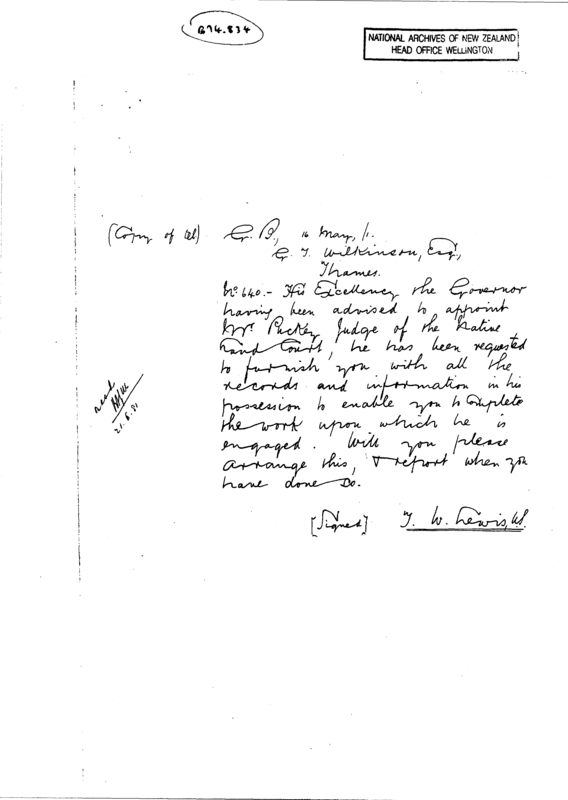 G74.834
NATIONAL ARCHIVES OF NEW ZEALAND
HEAD OFFICE WELLINGTON
(Copy of tel) G. B., 16 May, /.
G. T. Wilkinson, Esq,
Thames.
No 640.- His Excellency the Governor
having been advised to appoint
Mr Puckey Judge of the Native
Land Court, he has been requested
to furnish you with all the
records and information in his
possession to enable you to complete
the work upon which he is
engaged. Will you please
arrange this, & report when you
have done so.
[Signed] T. W. Lewis, US.
21.6.81